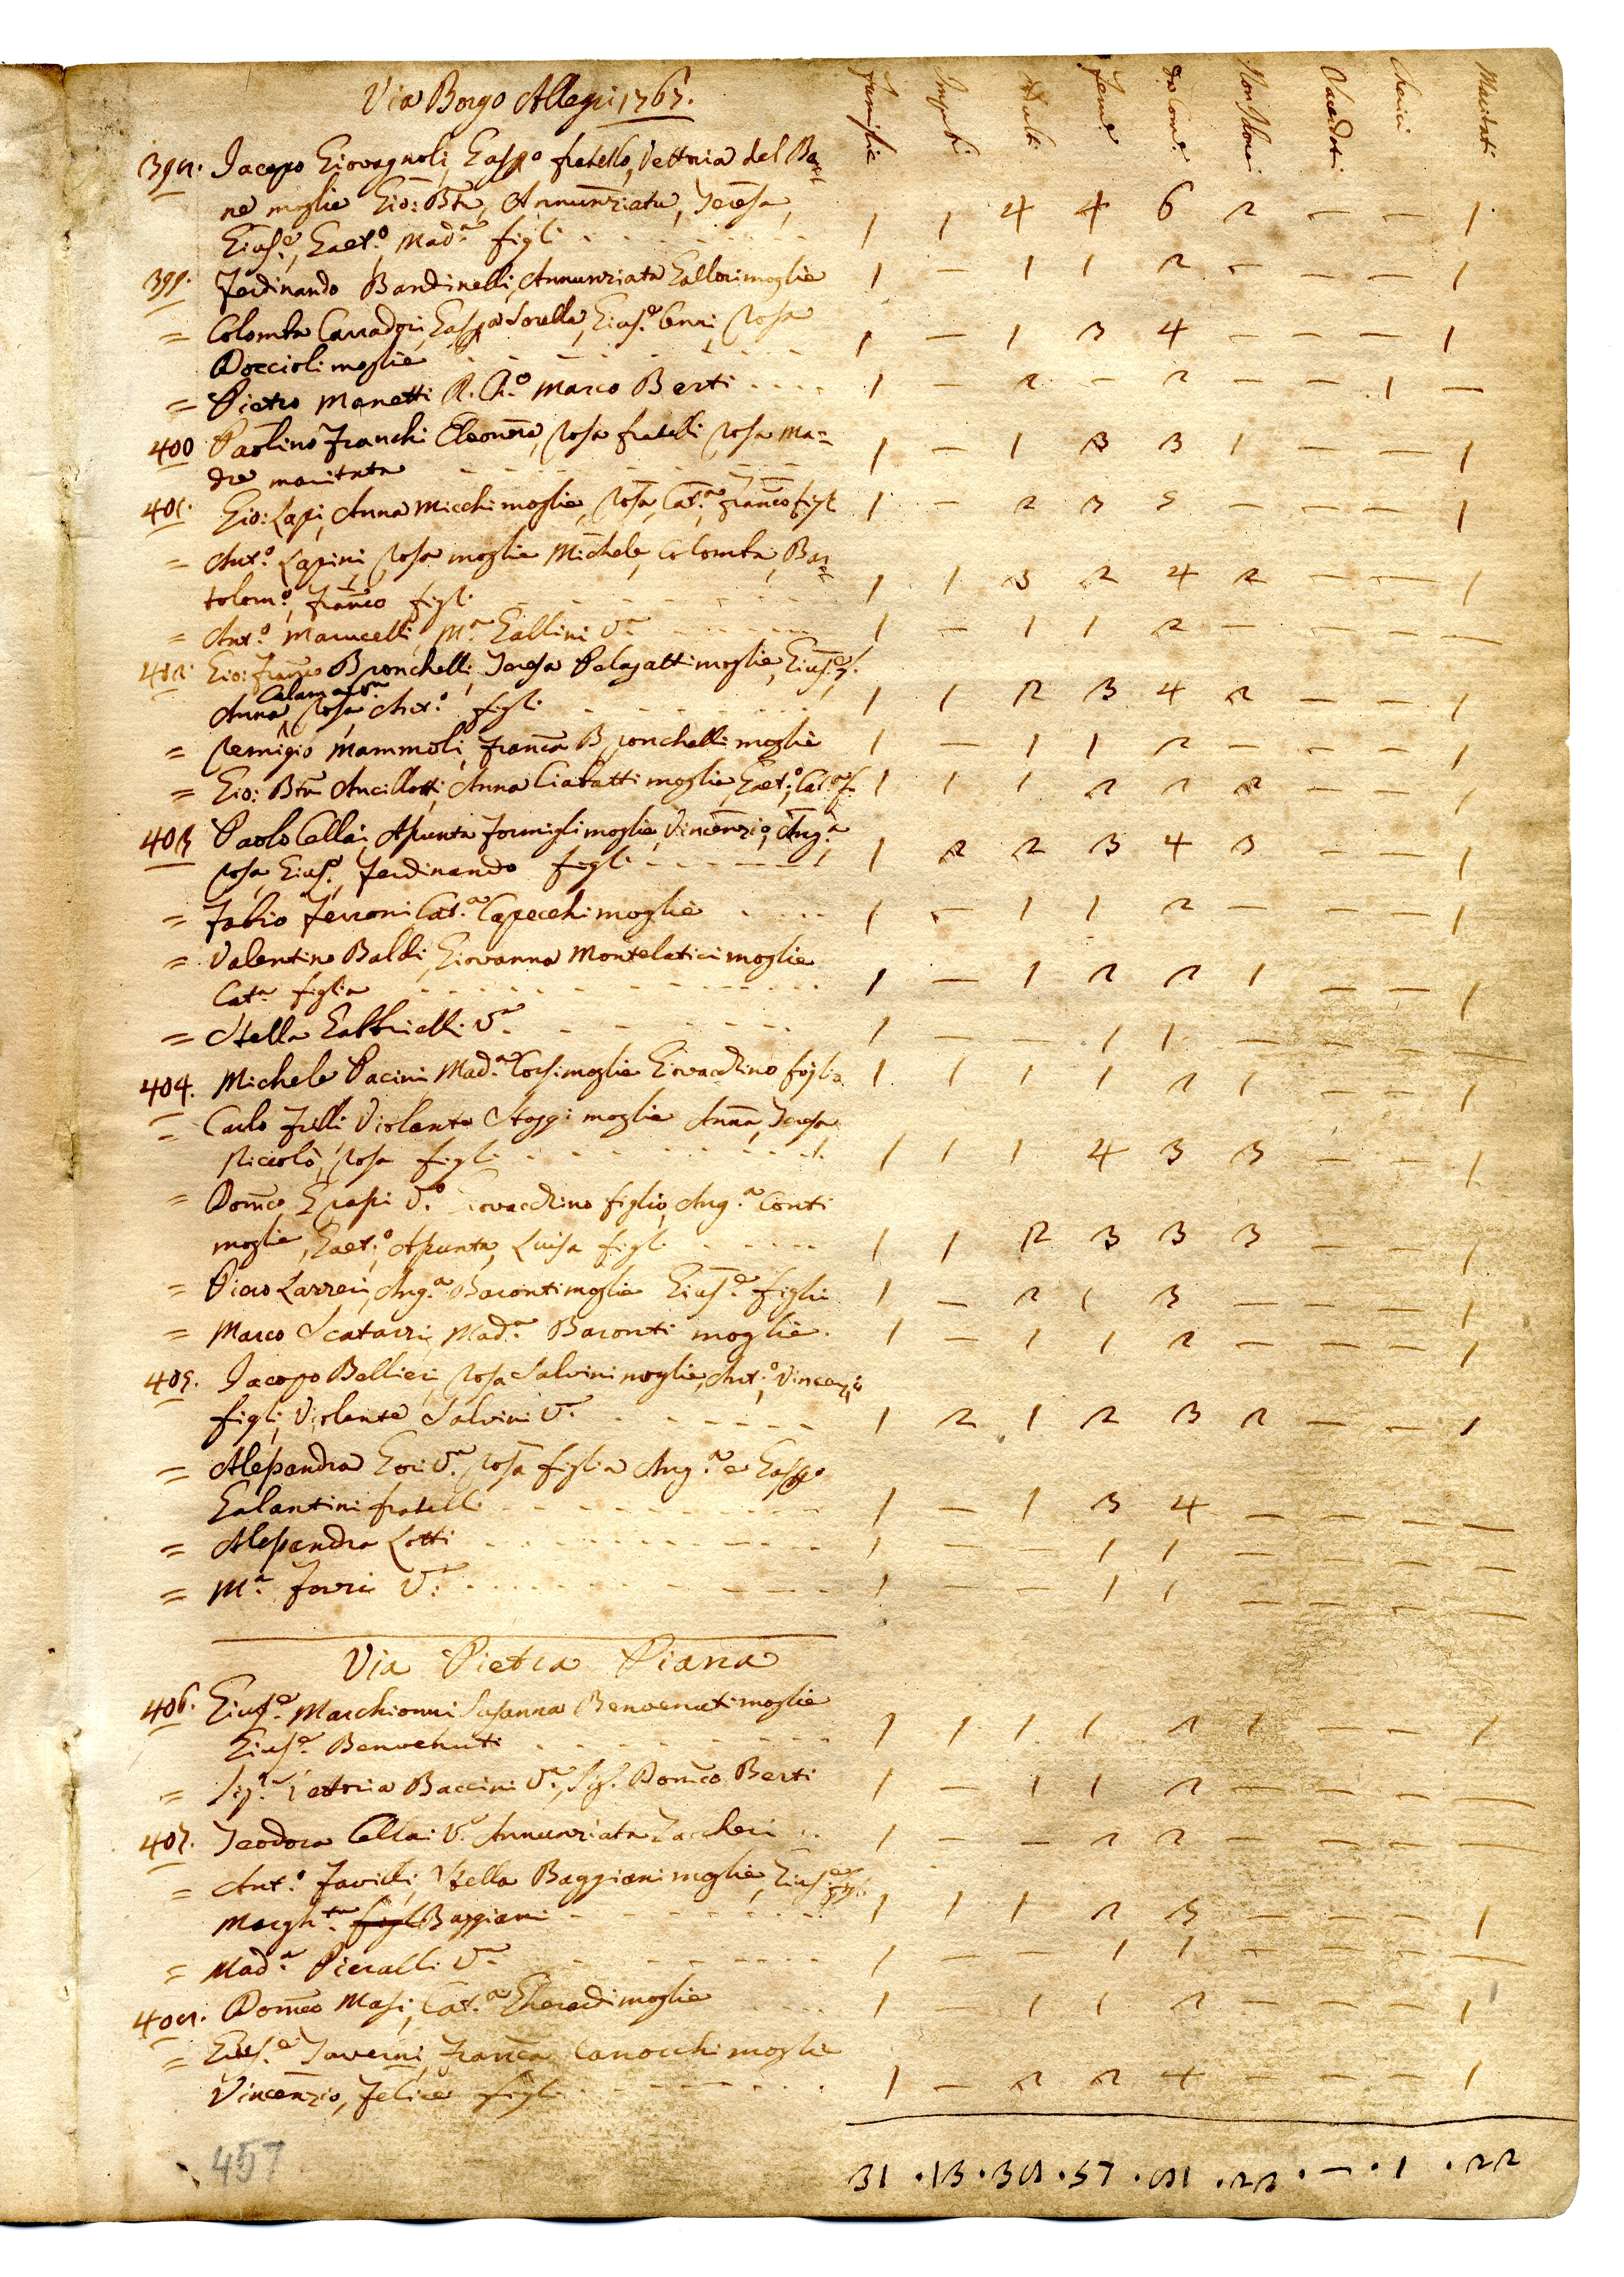 Via Borgo Allegri 1767.
Famiglie Impub: Adulti Fem.e Da Com.e Non Com: Sacerdoti Cherici Maritati
398. Jacopo Giovagnoli, Gasp.o fratello, Vettoria del Bar
ne moglie Gio: Bta, Annunziata, Teresa,
Gius.e, Gaet.o, Mad.a figli 1 1 4 4 6 2 — — 1
399. Ferdinando Bandinelli, Annunziata Gallori moglie 1 — 1 1 2 — — — 1
= Colomba Carradori, Gaspa Sorella, Gius.e Cenni, Rosa
Doccioli moglie 1 — 1 3 4 — — — 1
= Pietro Manetti R. Ch.o Marco Berti 1 — 2 — 2 — — 1 —
400 Paolino Franchi Eleonora, Rosa fratelli Rosa Ma=
dre maritata 1 — 1 3 3 1 — — 1
401. Gio: Lapi, Anna Micchi moglie, Rosa, Cat.a, Franco figli 1 — 2 3 5 — — — 1
= Ant.o Lapini, Rosa moglie Michele, Colomba, Bar
tolom.o, Franco figli 1 1 3 2 4 2 — — 1
= Ant.o Marucelli, M.a Gallini V.a 1 — 1 1 2 — — — —
402. Gio: Franco Bronchelli, Teresa Palagatti moglie, Gius.e
Anna, Rosa, Ant.o figli 1 1 2 3 4 2 — — 1
= Remigio Mammoli, Franca Bronchelli moglie 1 — 1 1 2 — — — 1
= Gio: Bta Ancillotti, Anna Ciabatti moglie, Gaet.o, Cat.a f. 1 1 1 2 2 2 — — 1
403 Paolo Cellai, Assunta Formigli moglie, Vincenzio, Ang.a
Rosa, Gius.e, Ferdinando figli 1 2 2 3 4 3 — — 1
= Fabio Ferroni Cat.a Capecchi moglie 1 — 1 1 2 — — — 1
= Valentino Baldi, Giovanna Montelatici moglie
Cat.a figlia 1 — 1 2 2 1 — — 1
= Stella Gabbrielli V.a 1 — — 1 1 — — — —
404. Michele Pacini Mad.a Corsi moglie Giovacchino figlio 1 1 1 1 2 1 — — 1
= Carlo Filli Violante Staggi moglie Anna, Teresa
Niccolò, Rosa figli 1 1 1 4 3 3 — — 1
= Domco Grassi V.o Giovacchino figlio, Ang.a Conti
moglie, Gaet.o, Assunta, Luisa figli 1 1 2 3 3 3 — — 1
= Piero Larreri, Ang.a Baronti moglie Gius.e figlio 1 — 2 1 3 — — — 1
= Marco Scatarzi, Mad.a Baronti moglie. 1 — 1 1 2 — — — 1
405. Jacopo Bellieri, Rosa Salvini moglie, Ant.o, Vincenzio
figli, Violante Salvini V.a 1 2 1 2 3 2 — — 1
= Alessandra Gori V.a, Rosa figlia Ang.a e Gasp.o
Galantini fratelli 1 — 1 3 4 — — — —
= Alessandra Lotti 1 — — 1 1 — — — —
= M.a Forzi V.a 1 — — 1 1 — — — —
Via Pietra Piana
406. Gius.e Marchionni Susanna Benvenuti moglie
Gius.e Benvenuti 1 1 1 1 2 1 — — 1
= Sig.a Vettoria Baccini V.a, Sig. Domco Berti 1 — 1 1 2 — — — —
407. Teodora Cellai V.a Annunziata Zaccheri 1 — — 2 2 — — — —
= Ant.o Favilli, Stella Baggiani moglie, Gius.e figli
Margh.ta figli Baggiani 1 1 1 2 3 — — — 1
= Mad.a Pieralli V.a 1 — — 1 1 — — — —
408. Domco Masi, Cat.a Gherardi moglie 1 — 1 1 2 — — — 1
= Gius.e Taverni, Franca Canocchi moglie
Vincenzio, Felice figli 1 — 2 2 4 — — — 1
31 . 13 . 38 . 57 . 81 . 22 . — . 1 . 22
457